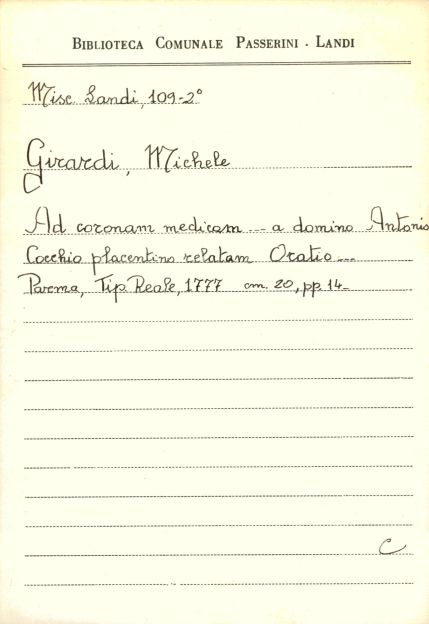 BIBLIOTECA COMUNALE PASSERINI - LANDI
Misc Landi, 109-2°
Girardi, Michele
Ad coronam medicam --- a domino Antonio
Cocchio placentino relatam Oratio ---
Parma, Tip. Reale, 1777 cm. 20, pp. 14_
C